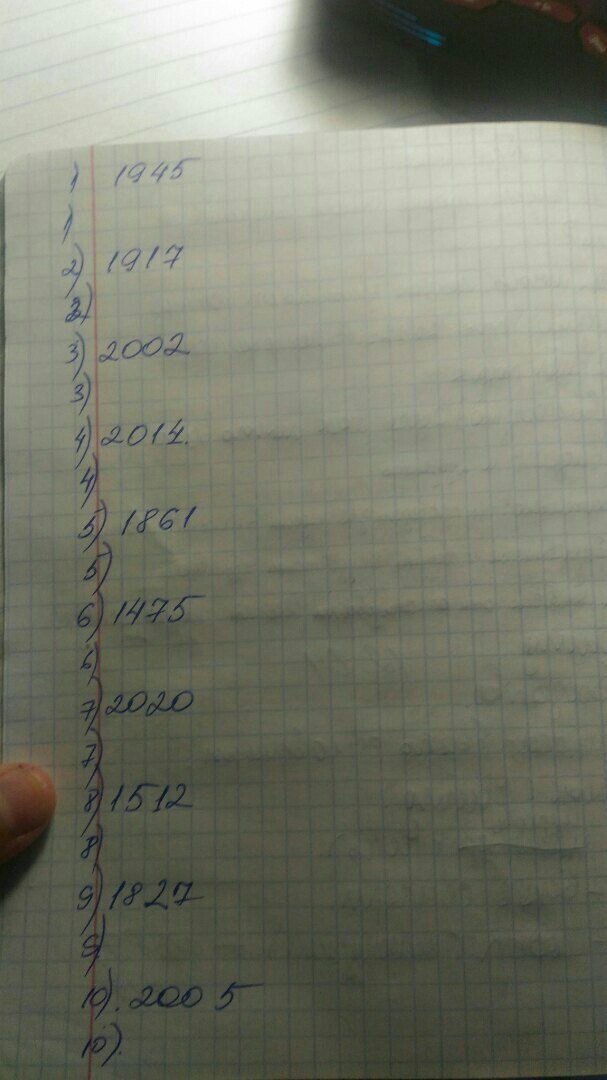 1 1945
1)
2) 1917
2)
3) 2002
3)
4) 2014.
4)
5) 1861
5)
6) 1475
6)
7) 2020
7)
8) 1512
8)
9) 1827
9)
10). 2005
10).